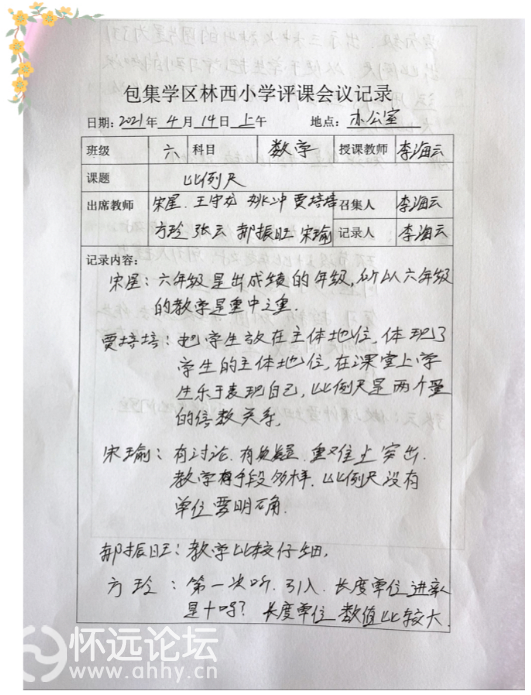 包集学区林西小学评课会议记录
日期：2021年 4 月 14日 上午 地点：办公室
班级 六 科目 数学 授课教师 李海云
课题 比例尺
出席教师 宋星、王守龙 姚冲 贾培培 召集人 李海云
方玲 张云 郝振旺 宋瑜 记录人 李海云
记录内容：
宋星：六年级是出成绩的年级，所以六年级
的教学是重中之重
贾培培：把学生放在主体地位，体现了
学生的主体地位，在课堂上学
生乐于表现自己，比例尺是两个量
的倍数关系．
宋瑜：有讨论．有质疑．重难点突出．
教学手段多样．比例尺没有
单位要明确．
郝振旺：教学比较仔细．
方玲：第一次听．引入．长度单位 进率
是十吗？长度单位 数值比较大．
怀远论坛
www.ahhy.cn